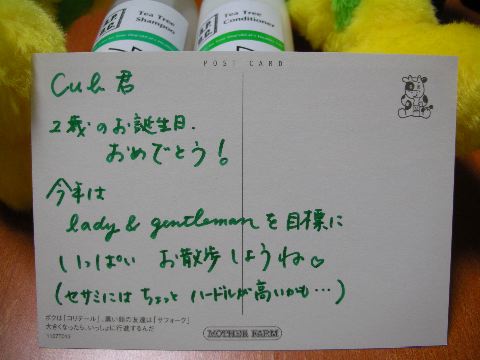 Tea Tree
Shampoo
Tea Tree
Conditioner
POST CARD
Cuh君
2歳のお誕生日.
おめでとう!
今年は
lady & gentlemanを目標に
いっぱい お散歩しようね♡
(セサミには ちょっと ハードルが高いかも…)
ボクは「コリデール」、黒い顔の友達は「サフォーク」
大きくなったら、いっしょに行進するんだ
MOTHER FARM